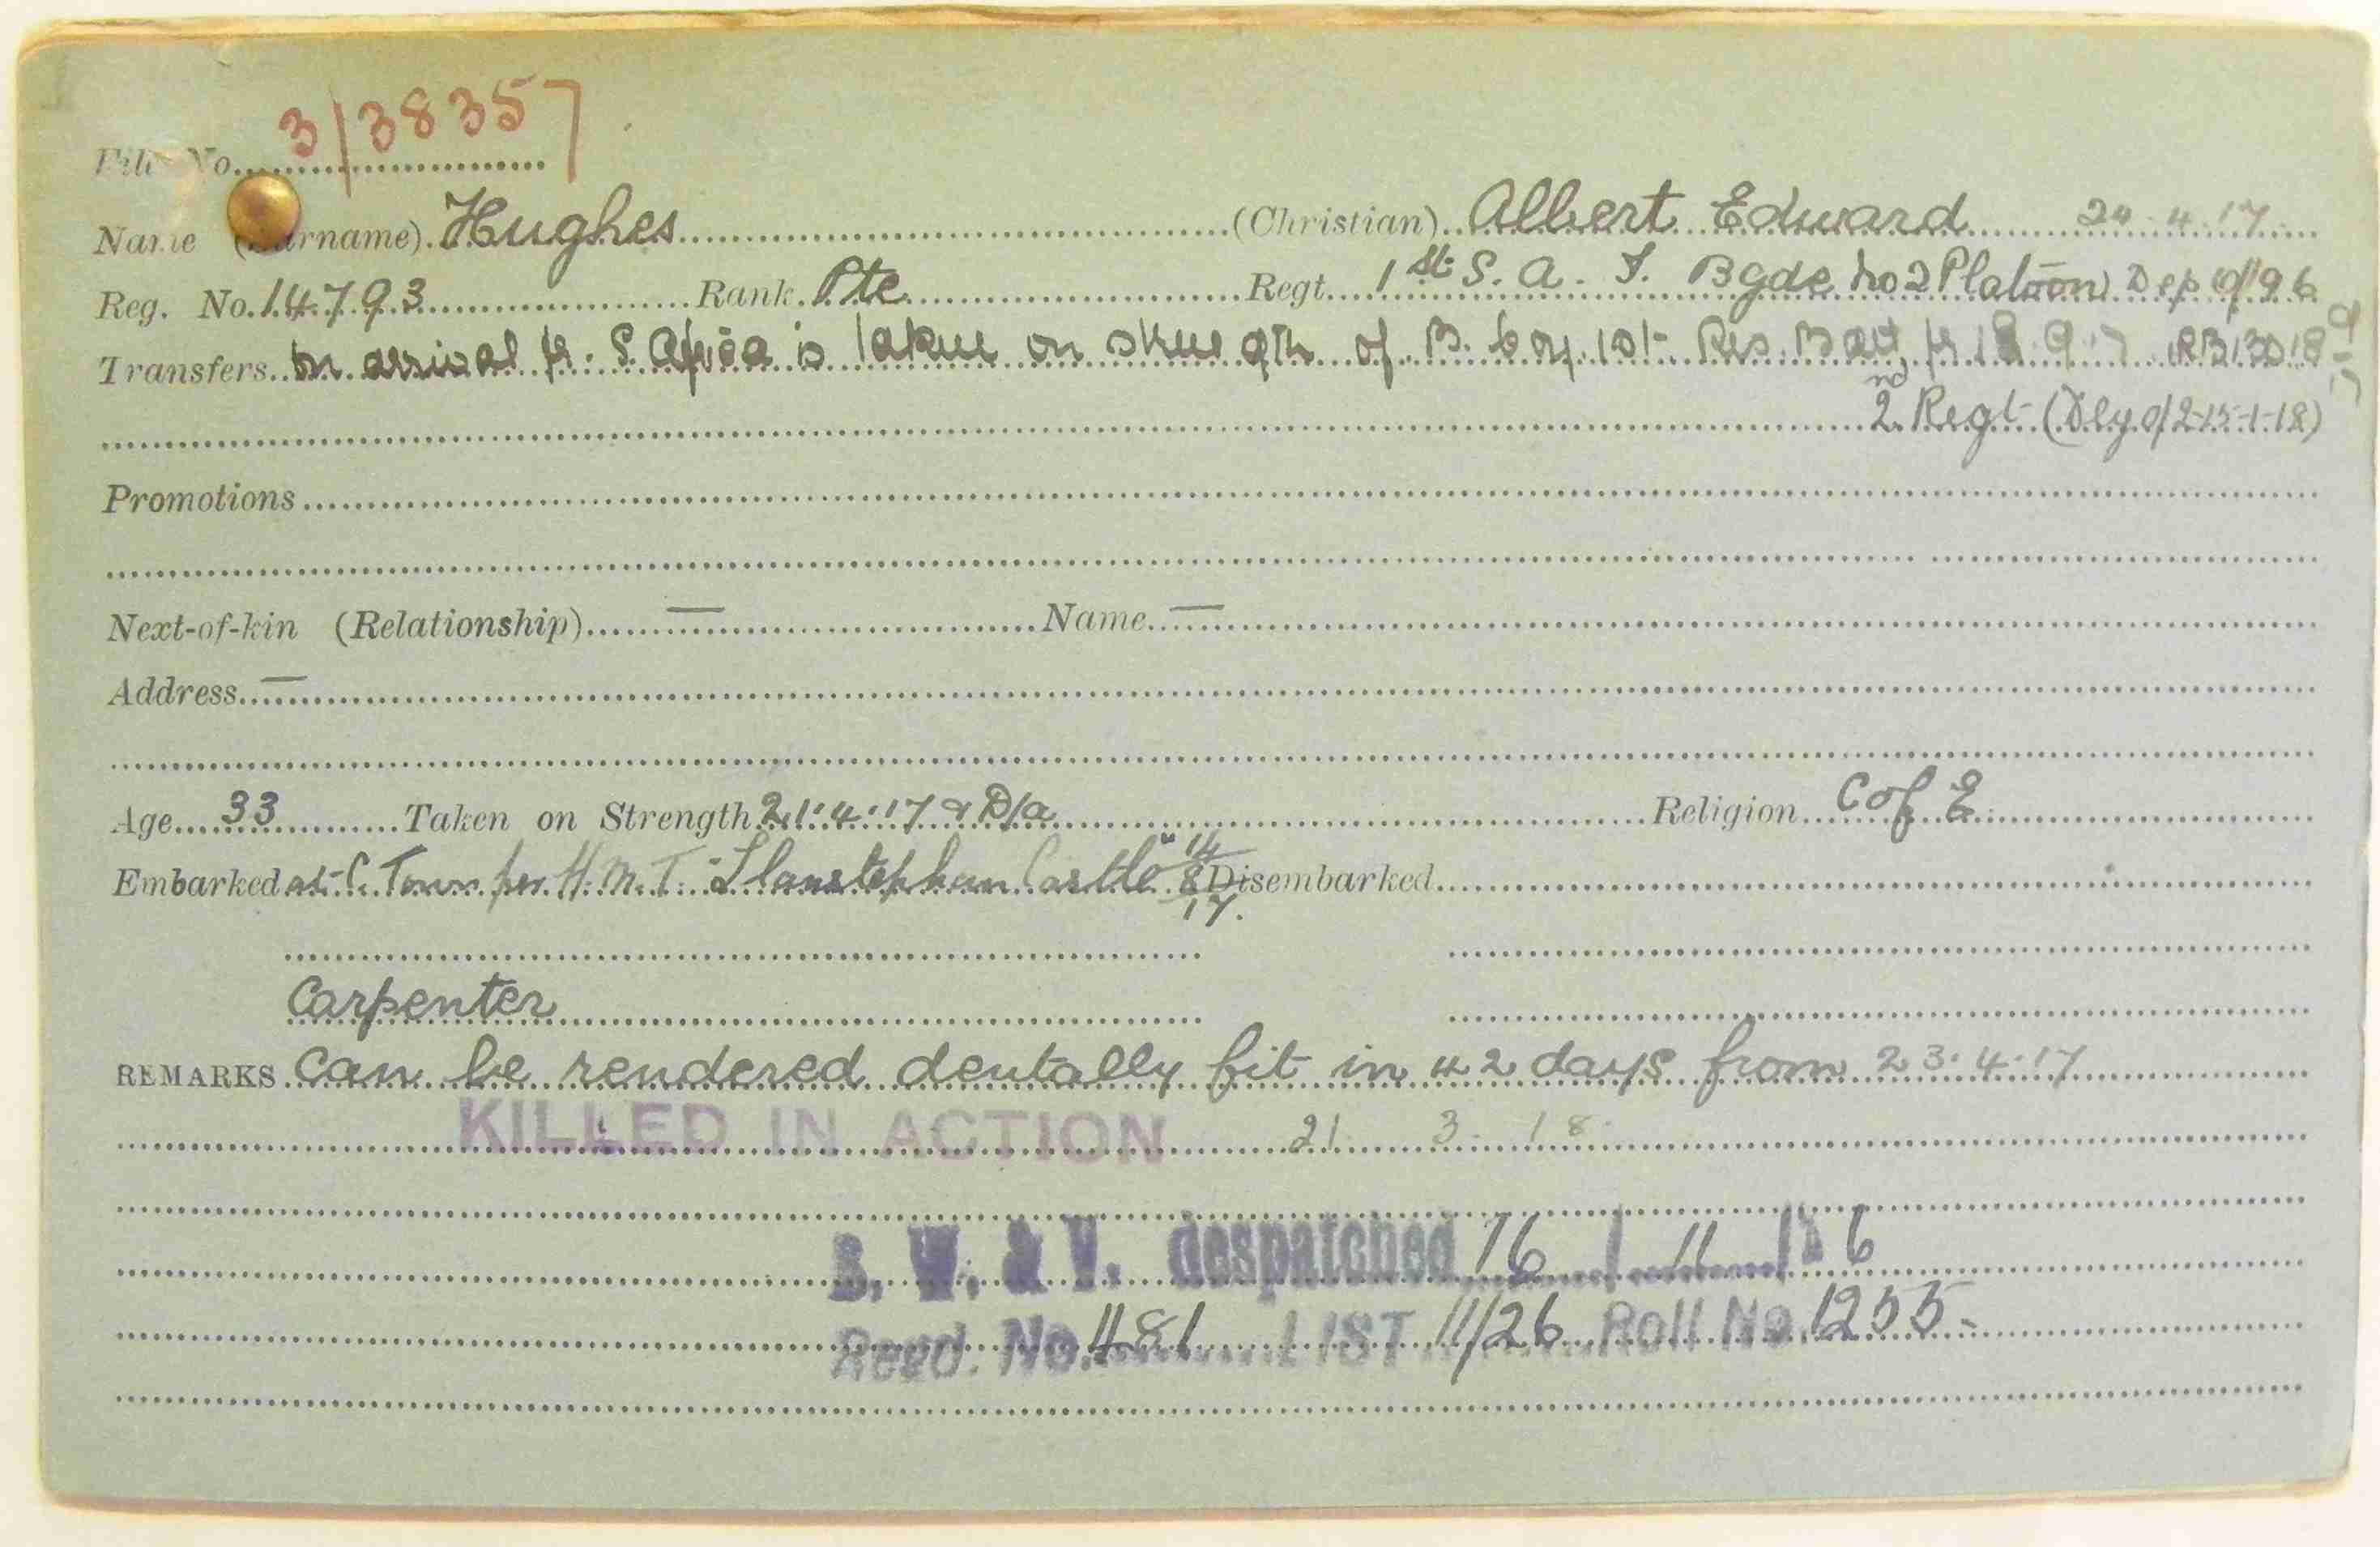 3/38357
File No.
Name (Surname) Hughes (Christian) Albert Edward 24.4.17
Reg. No. 14793 Rank Pte Regt. 1st S. A. I. Bgde No 2 Platoon Dep 96
Transfers On arrival fr. S. Africa is taken on strength of B. Coy. 1st Res. Batt. fr
2nd Regt (Dly. o/ 2-15-1-18)
Promotions
Next-of-kin (Relationship) — Name —
Address —
Age 33 Taken on Strength 21.4.17 & D/a Religion C of E
Embarked at C. Town per H.M.T. "Llanstephan Castle" 14/8/17. Disembarked
Carpenter
REMARKS Can be rendered dentally fit in 42 days from 23.4.17
KILLED IN ACTION 21. 3. 18.
B. W. & V. despatched 16 / 11 / 26
Regd. No. 481 LIST 11/26 Roll No. 1255-